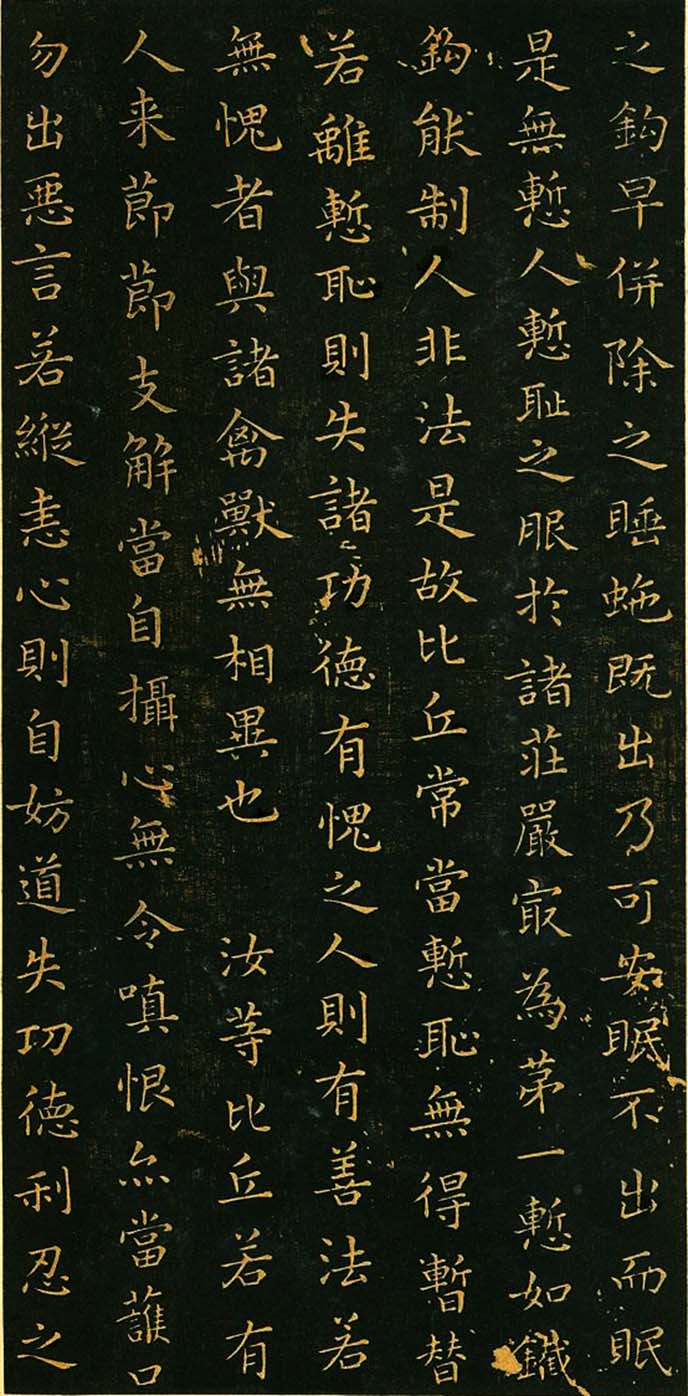 之鈎早併除之睡虵既出乃可安眠不出而眠
是無慙人慙耻之服於諸莊嚴㝡為苐一慙如鐵
鈎能制人非法是故比丘常當慙恥無得暫替
若離慙恥則失諸功德有愧之人則有善法若
無愧者與諸禽獸無相異也　汝等比丘若有
人来莭莭支解當自攝心無令嗔恨亦當護口
勿出惡言若縱恚心則自妨道失功德利忍之